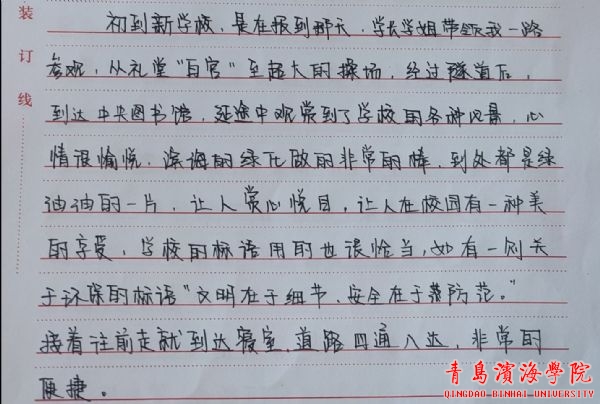 装
订
线
初到新学校，是在报到那天，学长学姐带领我一路
参观，从礼堂“白宫”至超大的操场，经过隧道后，
到达中央图书馆，延途中观赏到了学校的各种风景，心
情很愉悦，滨海的绿化做的非常的棒，到处都是绿
油油的一片，让人赏心悦目，让人在校园有一种美
的享受，学校的标语用的也很恰当，如有一则关
于环保的标语“文明在于细节、安全在于防范。”
接着往前走就到达寝室，道路四通八达，非常的
便捷。
青島濱海學院
QINGDAO BINHAI UNIVERSITY